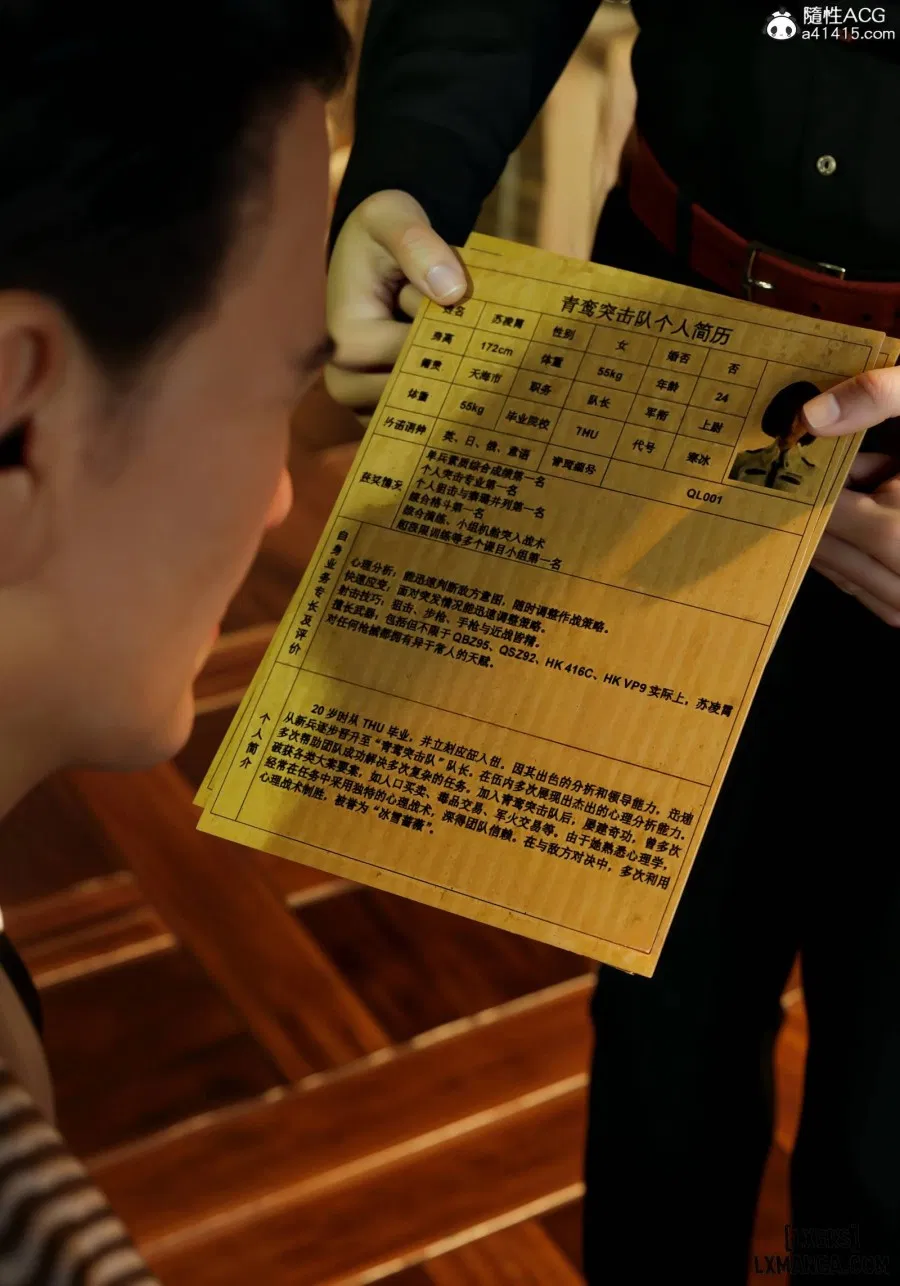 隨性ACG
a41415.com
青鸾突击队个人简历
姓名 苏凌霄 性别 女 婚否 否
身高 172cm 体重 55kg 年龄 24
籍贯 天海市 职务 队长 军衔 上尉
体重 55kg 毕业院校 THU 代号 寒冰
外语语种 英、日、俄、意语 QL001
获奖情况
单兵素质综合成绩第一名
个人突击专业第一名
个人狙击与秦璐并列第一名
综合格斗第一名
综合演练、小组机舱突入战术
和极限训练等多个课目小组第一名
自身业务专长及评价
心理分析，能迅速判断敌方意图，随时调整作战策略。
快速应变，面对突发情况能迅速调整策略。
射击技巧：狙击、步枪、手枪与近战皆精。
擅长武器，包括但不限于 QBZ95、QSZ92、HK 416C、HK VP9 实际上，苏凌霄
对任何枪械都拥有异于常人的天赋。
个人简介
20 岁时从 THU 毕业，并立刻应征入伍，因其出色的分析和领导能力，迅速
从新兵逐步晋升至“青鸾突击队”队长。在伍内多次展现出杰出的心理分析能力。
多次帮助团队成功解决多次复杂的任务。加入青鸾突击队后，屡建奇功，曾多次
破获各类大案要案，如人口买卖、毒品交易、军火交易等。由于她熟悉心理学，
经常在任务中采用独特的心理战术，深得团队信赖。在与敌方对决中，多次利用
心理战术制胜，被誉为“冰雪蔷薇”。
LXMANGA.COM